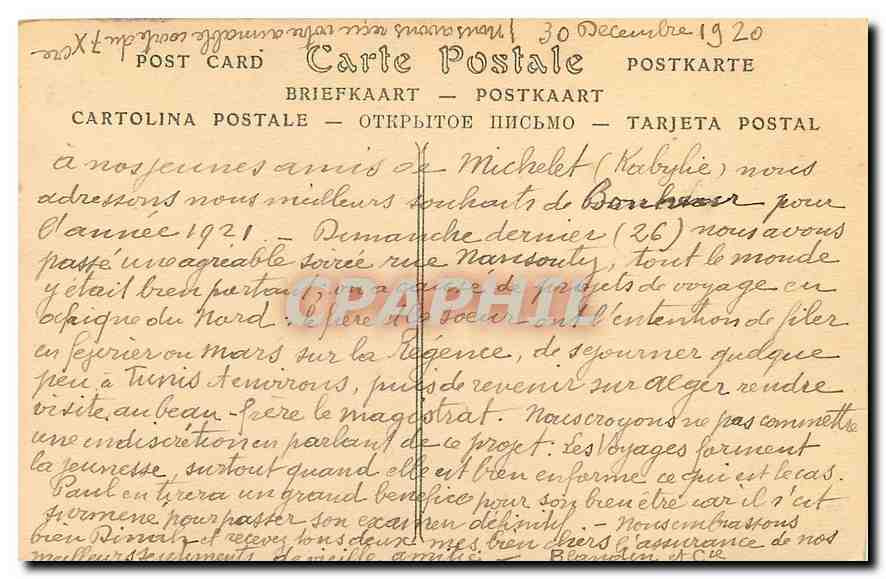 30 Decembre 1920
Nous avons reçu votre aimable carte du 7 Xbre
POST CARD Carte Postale POSTKARTE
BRIEFKAART — POSTKAART
CARTOLINA POSTALE — ОТКРЫТОЕ ПИСЬМО — TARJETA POSTAL
à nos jeunes amis de Michelet (Kabylie) nous
adressons nous meilleurs souhaits de Bonheur pour
l'année 1921 - Dimanche dernier (26) nous avons
passé une agréable soirée rue Nansouty, tout le monde
y était bien portant, on a causé de projets de voyage en
afrique du Nord : le frère et la soeur ont l'entention de filer
en fevrier ou Mars sur la Régence, de sejourner quelque
peu à Tunis & environs, puis de revenir sur alger rendre
visite au beau-frère le magistrat. Nous croyons ne pas commettre
une indiscrétion en parlant de ce projet. Les Voyages forment
la jeunesse, surtout quand elle est bien en forme ce qui est le cas.
Paul en tirera un grand benefice pour son bien être car il s'est
surmené pour passer son examen définitif. - Nous embrassons
bien et recevez tous deux mes bien chers l'assurance de nos
meilleurs sentiments de vieille amitié - Blandin et Cie
CPAPHIL